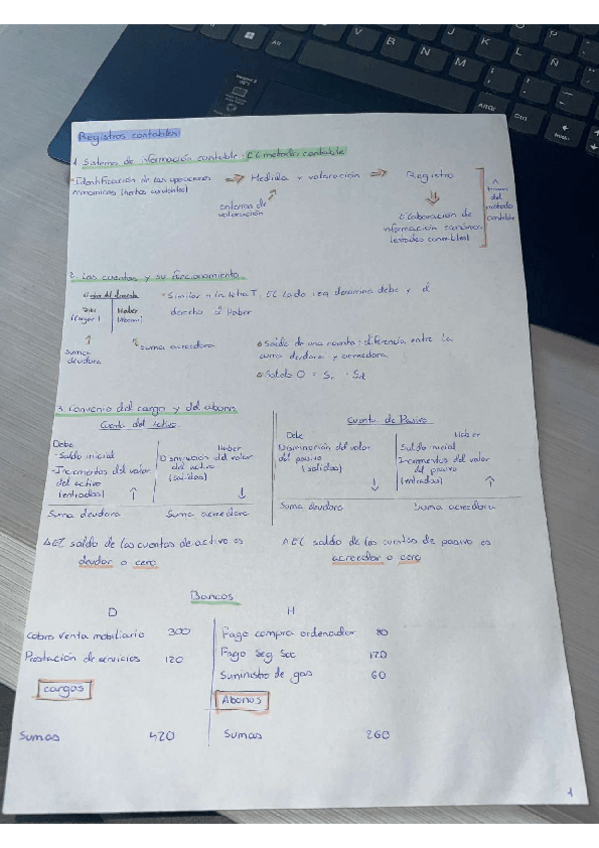 Registros contables
1. Sistema de información contable: El método contable
Identificación de las operaciones ⇒ Medida y valoración ⇒ Registro
económicas (hechos contables)
criterios de
valoración
Elaboración de
información
(estados contables)
del
método
contable
2. Las cuentas y su funcionamiento
Debe Haber
(cargar) (abonar)
suma
deudora
suma acreedora
Similar a la letra T. El lado izq denomina debe y el
derecho Haber
Saldo de una cuenta: diferencia entre la
suma deudora y acreedora
3. Convenio del cargo y del abono
Cuenta del Activo
Debe Haber
- Saldo inicial
- Incrementos del valor
del activo
(entradas) ↑
Disminución del valor
del activo
(salidas) ↓
Suma deudora Suma acreedora
El saldo de las cuentas de activo es
deudor o cero
Cuenta de Pasivo
Debe Haber
Disminución del valor
del pasivo
(salidas) ↓
Saldo inicial
Incrementos del valor
del pasivo
(entradas) ↑
Suma deudora Suma acreedora
El saldo de las cuentas de pasivo es
acreedor o cero
Bancos
D H
Cobro venta mobiliario 300 Pago compra ordenador 80
Prestación de servicios 120 Pago Seg Soc 120
Suministro de gas 60
cargos Abonos
Sumas 420 Sumas 260
1